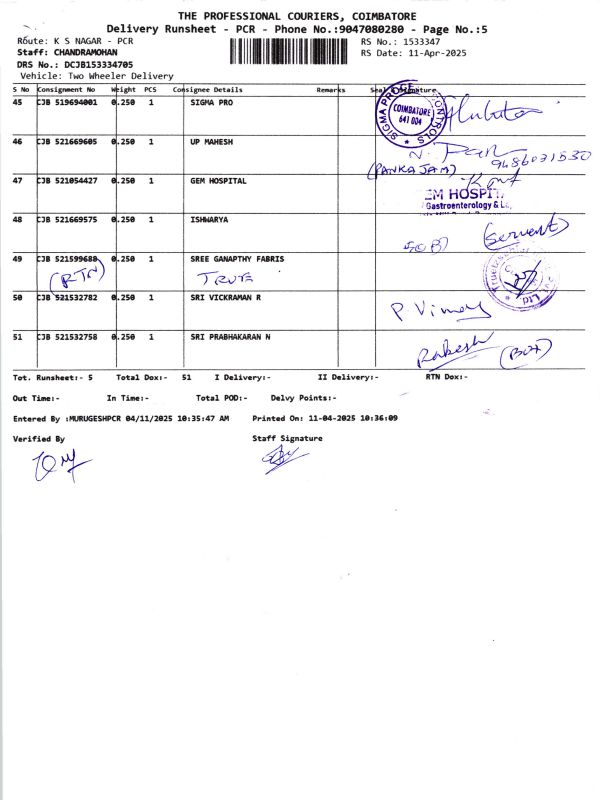 THE PROFESSIONAL COURIERS, COIMBATORE
Delivery Runsheet - PCR - Phone No.:9047080280 - Page No.:5
Route: K S NAGAR - PCR
RS No.: 1533347
Staff: CHANDRAMOHAN
RS Date: 11-Apr-2025
DRS No.: DCJB153334705
Vehicle: Two Wheeler Delivery
S No Consignment No Weight PCS Consignee Details Remarks Seal & Signature
45 CJB 519694001 0.250 1 SIGMA PRO
COIMBATORE
641 004
46 CJB 521669605 0.250 1 UP MAHESH
9486031530
(PANKAJAM)
47 CJB 521054427 0.250 1 GEM HOSPITAL
EM HOSPIT
Gastroenterology &
48 CJB 521669575 0.250 1 ISHWARYA
(Servent)
49 CJB 521599680 0.250 1 SREE GANAPTHY FABRIS
(RTN) TRUTE
50 CJB 521532782 0.250 1 SRI VICKRAMAN R
P Vimay
51 CJB 521532758 0.250 1 SRI PRABHAKARAN N
Rakesh (Box)
Tot. Runsheet:- 5 Total Dox:- 51 I Delivery:- II Delivery:- RTN Dox:-
Out Time:- In Time:- Total POD:- Delvy Points:-
Entered By :MURUGESHPCR 04/11/2025 10:35:47 AM Printed On: 11-04-2025 10:36:09
Verified By Staff Signature